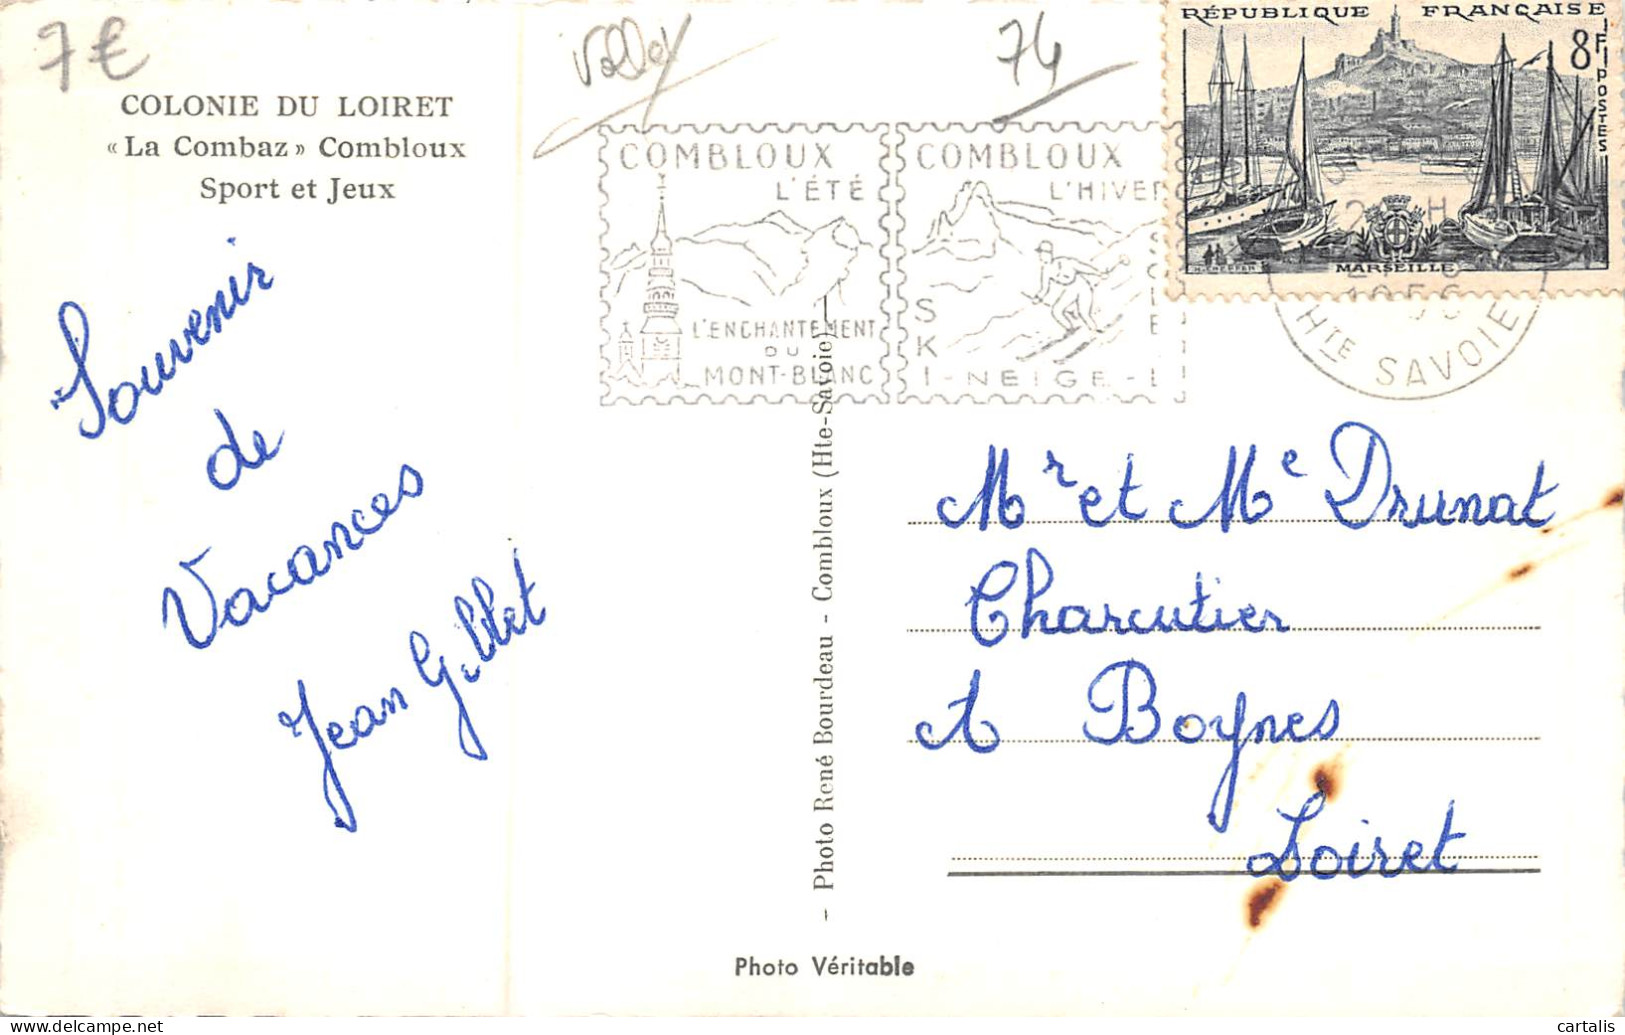 7€
Volley
74
COLONIE DU LOIRET
« La Combaz » Combloux
Sport et Jeux
Souvenir
de
Vacances
Jean Gillet
COMBLOUX
L'ÉTÉ
L'ENCHANTEMENT
DU
MONT-BLANC
COMBLOUX
L'HIVER
SKI - NEIGE -
RÉPUBLIQUE FRANÇAISE
8F
POSTES
MARSEILLE
1956
HTE SAVOIE
- Photo René Bourdeau - Combloux (Hte-Savoie) -
Mr et Me Drunat
Charcutier
A Boynes
Loiret
Photo Véritable
cartalis